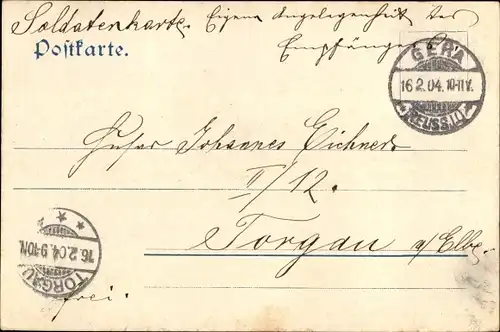 Soldatenkarte. Eigene Angelegenheit des
Empfängers.
Postkarte.
GERA
16.2.04.10-11V.
(REUSS)
Husar Johannes Eichner
II/12.
Torgau a/Elbe
TORGAU
16.2.04.9-10N.
frei.